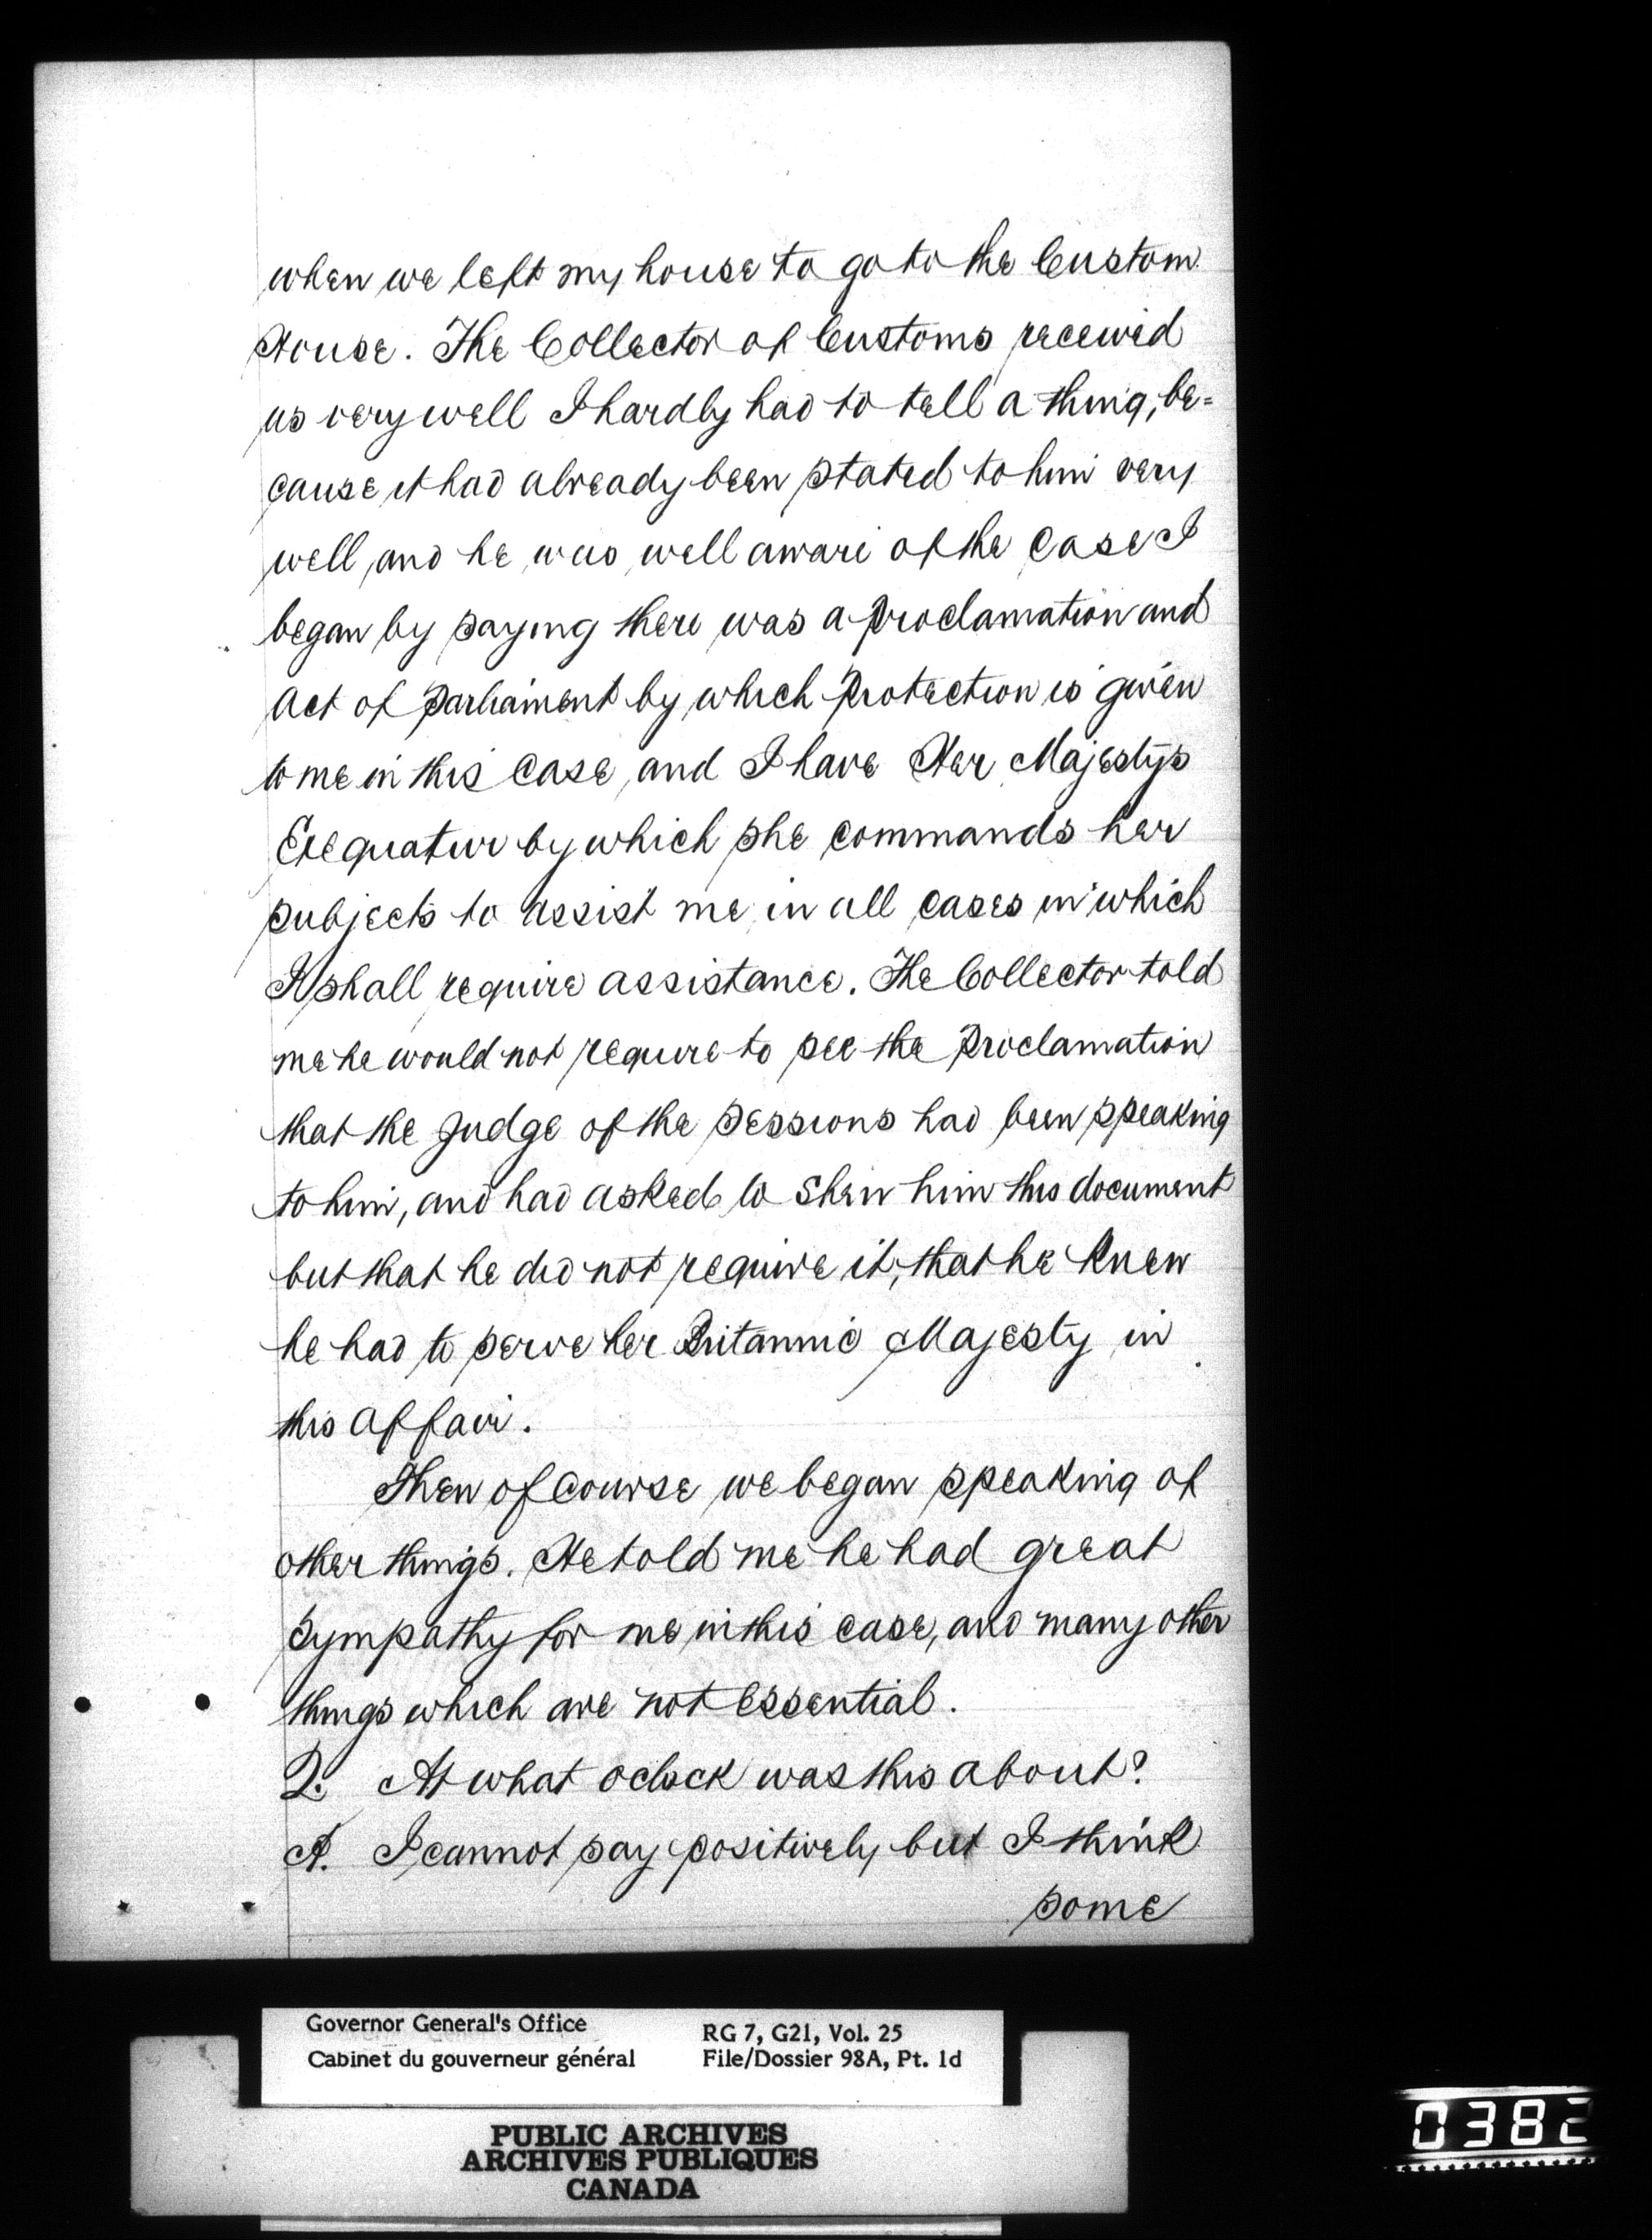 when we left my house to go to the Custom
House. The Collector of Customs received
us very well I hardly had to tell a thing, be=
cause it had already been stated to him very
well, and he was well aware of the case I
began by saying there was a Proclamation and
Act of Parliament by which Protection is given
to me in this case, and I have Her Majestys
Exequatur by which she commands her
subjects to assist me in all cases in which
I shall require assistance. The Collector told
me he would not require to see the Proclamation
that the Judge of the Sessions had been speaking
to him, and had asked to shew him this document
but that he did not require it, that he knew
he had to serve her Britannic Majesty in
this affair.
Then of course we began speaking of
other things. He told me he had great
sympathy for me in this case, and many other
things which are not essential.
Q. At what oclock was this about?
A. I cannot say positively but I think
some
Governor General's Office
Cabinet du gouverneur général
RG 7, G21, Vol. 25
File/Dossier 98A, Pt. 1d
PUBLIC ARCHIVES
ARCHIVES PUBLIQUES
CANADA
0382